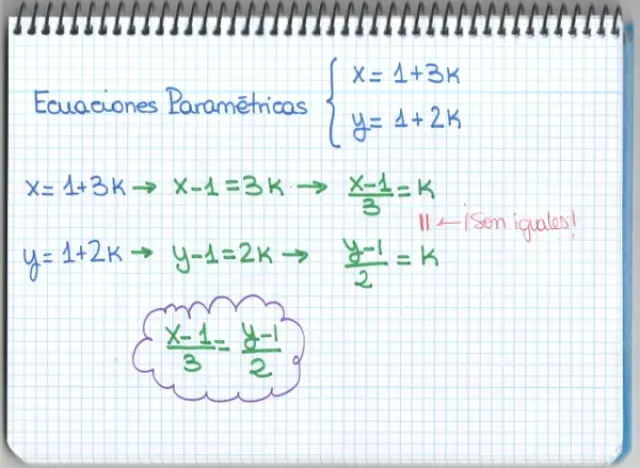 Ecuaciones Paramétricas { x = 1+3K
y = 1+2K
x = 1+3K → x-1 = 3K → x-1/3 = K
|| ← ¡Son iguales!
y = 1+2K → y-1 = 2K → y-1/2 = K
x-1/3 = y-1/2